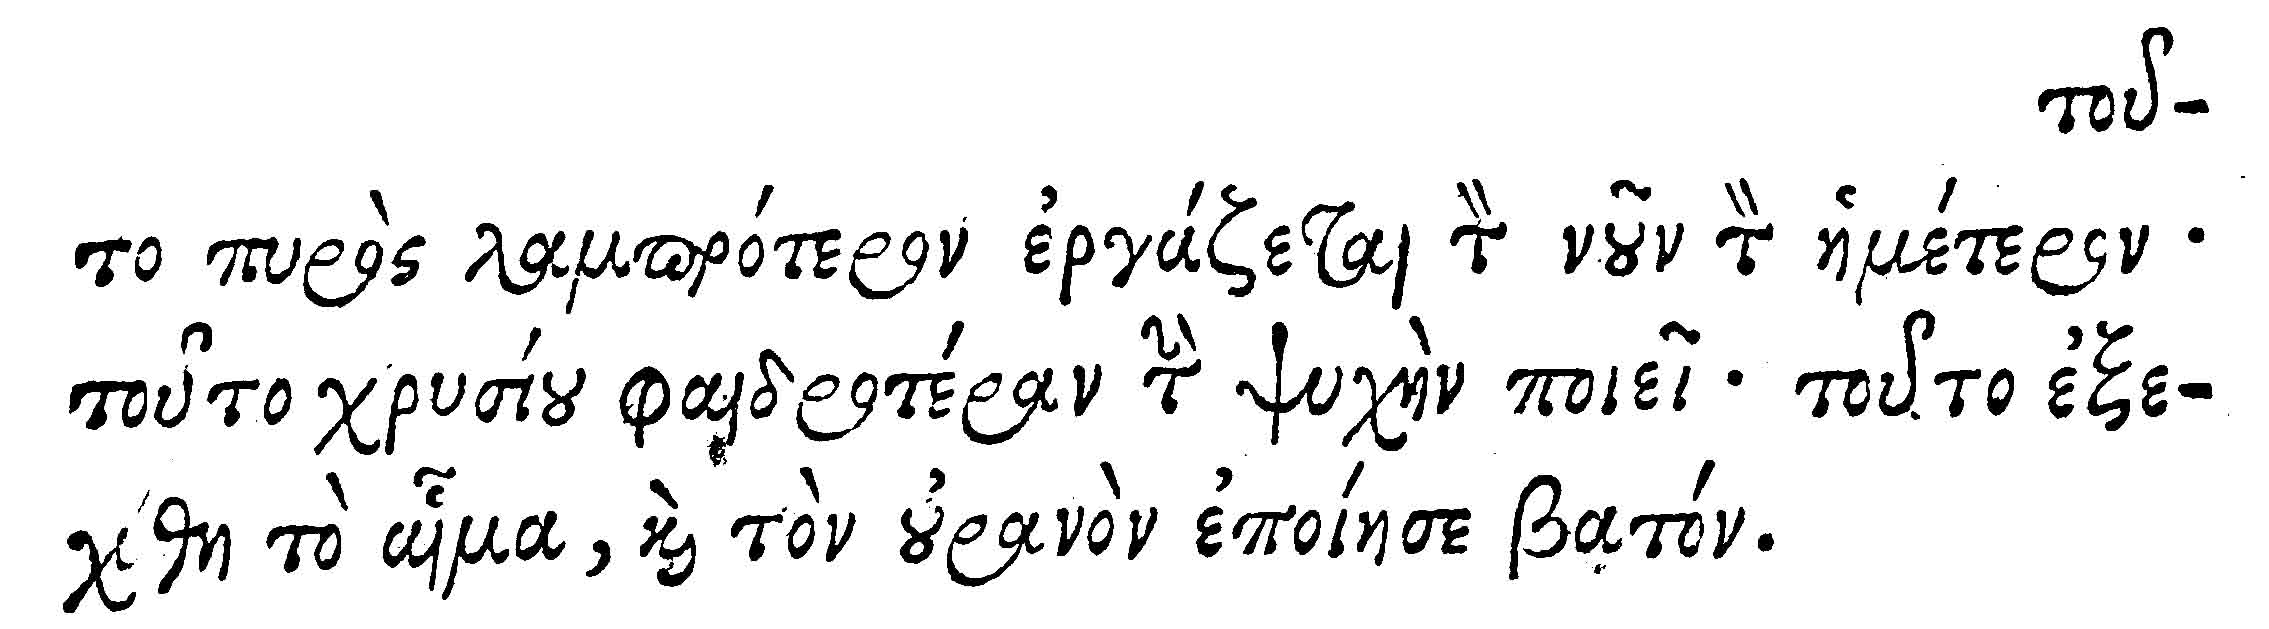 τοῦ-
το πυρὸς λαμπρότερον ἐργάζεται τὸν νοῦν τὸν ἡμέτερον·
τοῦτο χρυσίου φαιδροτέραν τὴν ψυχὴν ποιεῖ· τοῦτο ἐξε-
χύθη τὸ αἷμα, καὶ τὸν οὐρανὸν ἐποίησε βατόν.